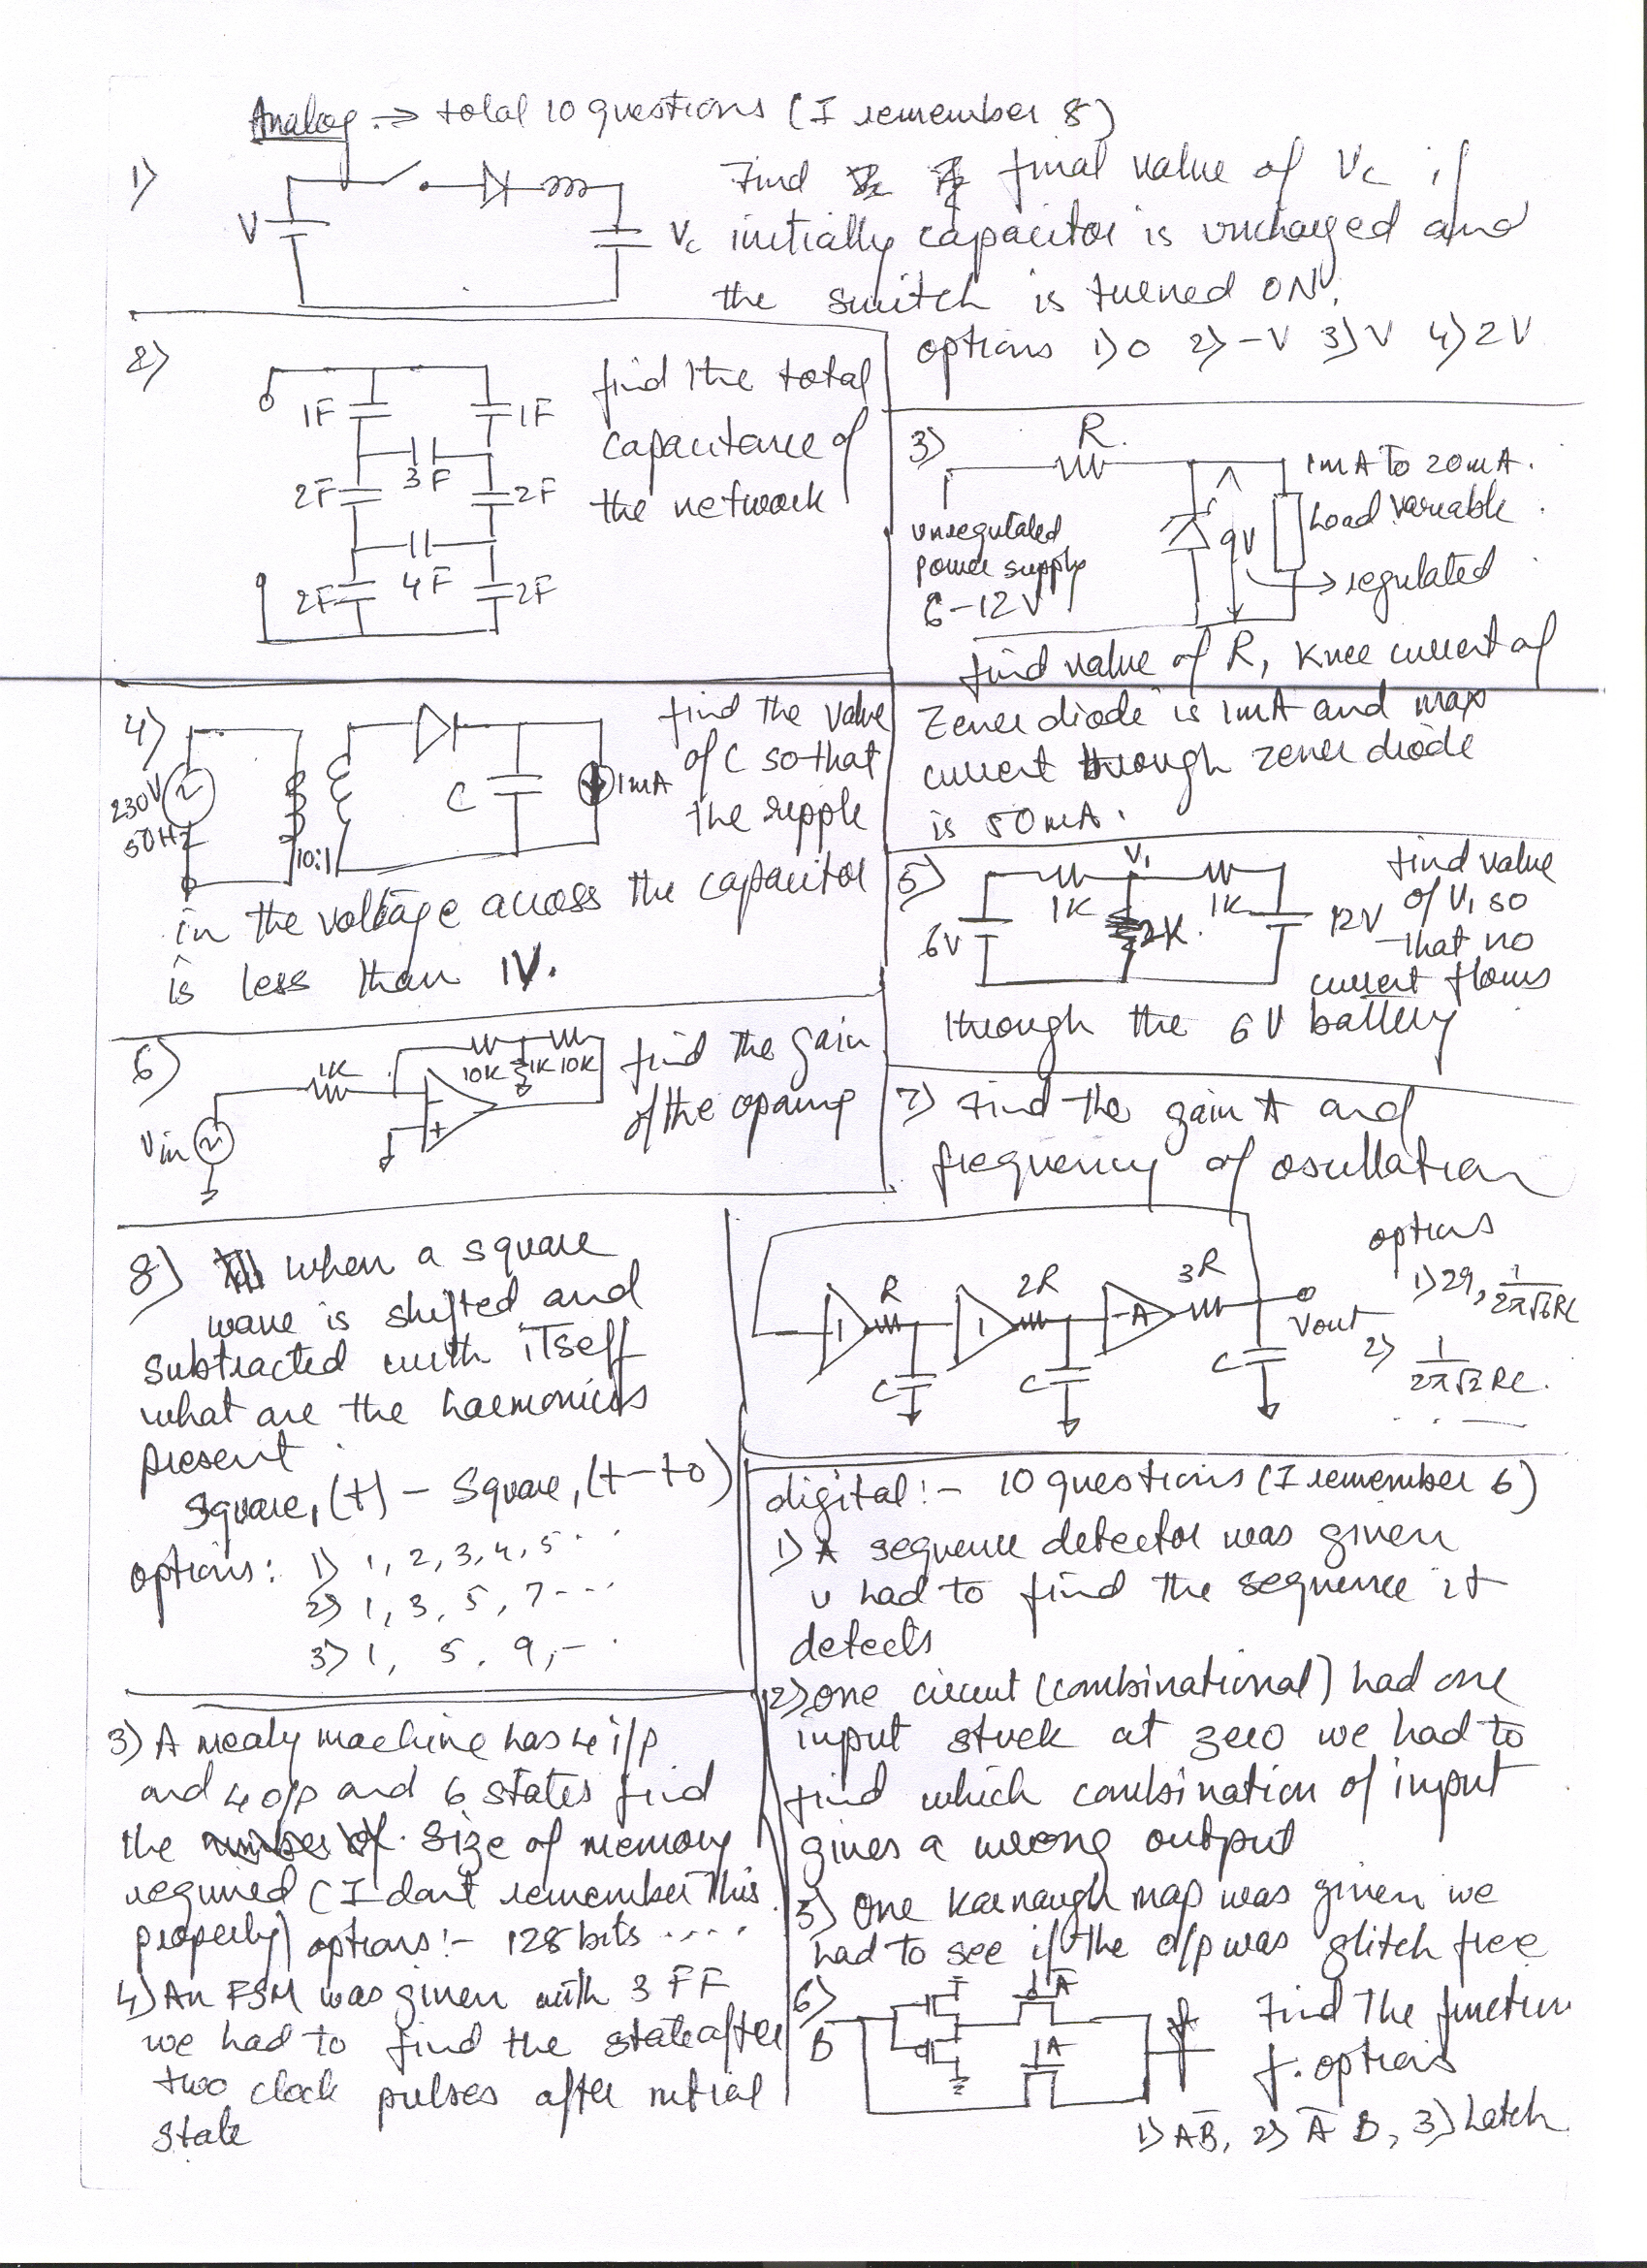 Analog :→ total 10 questions (I remember 8)
1)
V
Vc
Find final value of Vc if
initially capacitor is uncharged and
the switch is turned ON.
options 1) 0 2) -V 3) V 4) 2V
2)
1F
1F
3F
2F
2F
4F
2F
2F
find the total
capacitance of
the network
3)
R.
1mA to 20mA.
Load variable
9V
→ regulated
unregulated
power supply
6-12V
find value of R, Knee current of
Zener diode is 1mA and max
current through zener diode
is 50mA.
4)
230V
50Hz
10:1
C
1mA
find the value
of C so that
the ripple
in the voltage across the capacitor
is less than 1V.
5)
V1
1K
1K
2K.
6V
12V
find value
of V1 so
that no
current flows
through the 6V battery
6)
1K
10K
1K
10K
-
+
Vin
find the gain
of the opamp
7) Find the gain A and
frequency of oscillation
R
2R
3R
1
1
-A
C
C
C
Vout
options
1) 29, 1/2π√6RC
2) 1/2π√2 RC.
8) when a square
wave is shifted and
subtracted with itself
what are the harmonics
present.
Square, (t) - Square, (t-to)
options: 1) 1, 2, 3, 4, 5...
2) 1, 3, 5, 7---
3) 1, 5, 9, -.
digital :- 10 questions (I remember 6)
1) A sequence detector was given
u had to find the sequence it
detects
2) One circuit (combinational) had one
input stuck at zero we had to
find which combination of input
gives a wrong output
3) A mealy machine has 4 i/p
and 4 o/p and 6 states find
the size of memory
required (I dont remember this
properly) options :- 128 bits ....
4) An FSM was given with 3 FF
we had to find the state after
two clock pulses after initial
state
5) One Karnaugh map was given we
had to see if the o/p was glitch free
6)
B
Ā
A
f
Find the function
f. options
1) AB̄, 2) Ā B, 3) Latch